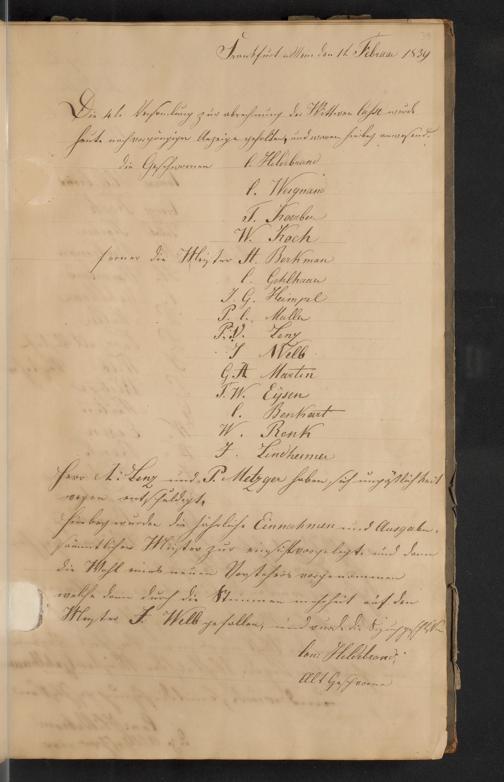 39
Frankfurt a/Mein den 12 Februar 1839
Die 4te Versamlung zur abrechnung der Wittwen Casse wurde
heute nach vorgängiger Anzeige gehalten, und waren hierbey anwesend.
die Geschwornen C. Hildebrand
C. Weignand
F. Koerber
W. Koch
ferner die Meister H. Berkman
C. Gehlhaar
J. G. Hempel
P. C. Muller
P. V. Lenz
J Welb
G. A Martin
F. W. Eysen
C. Benkart
W. Renk
F. Lindheimer
Herr A. Lenz und P. Metzger haben sich unpäßlichkeit
wegen entschuldigt.
Hierbey wurden die jährliche Einnahmen und Ausgaben
sämmtlichen Meister zur einsicht vorgelegt, und dann
die Wahl eines neuen Vorstehers vorgenommen
welche dann durch die Stimmen mehrheit auf den
Meister J. Welb gefallen, und wurde die
Hildebrand,
Alt Geschworner